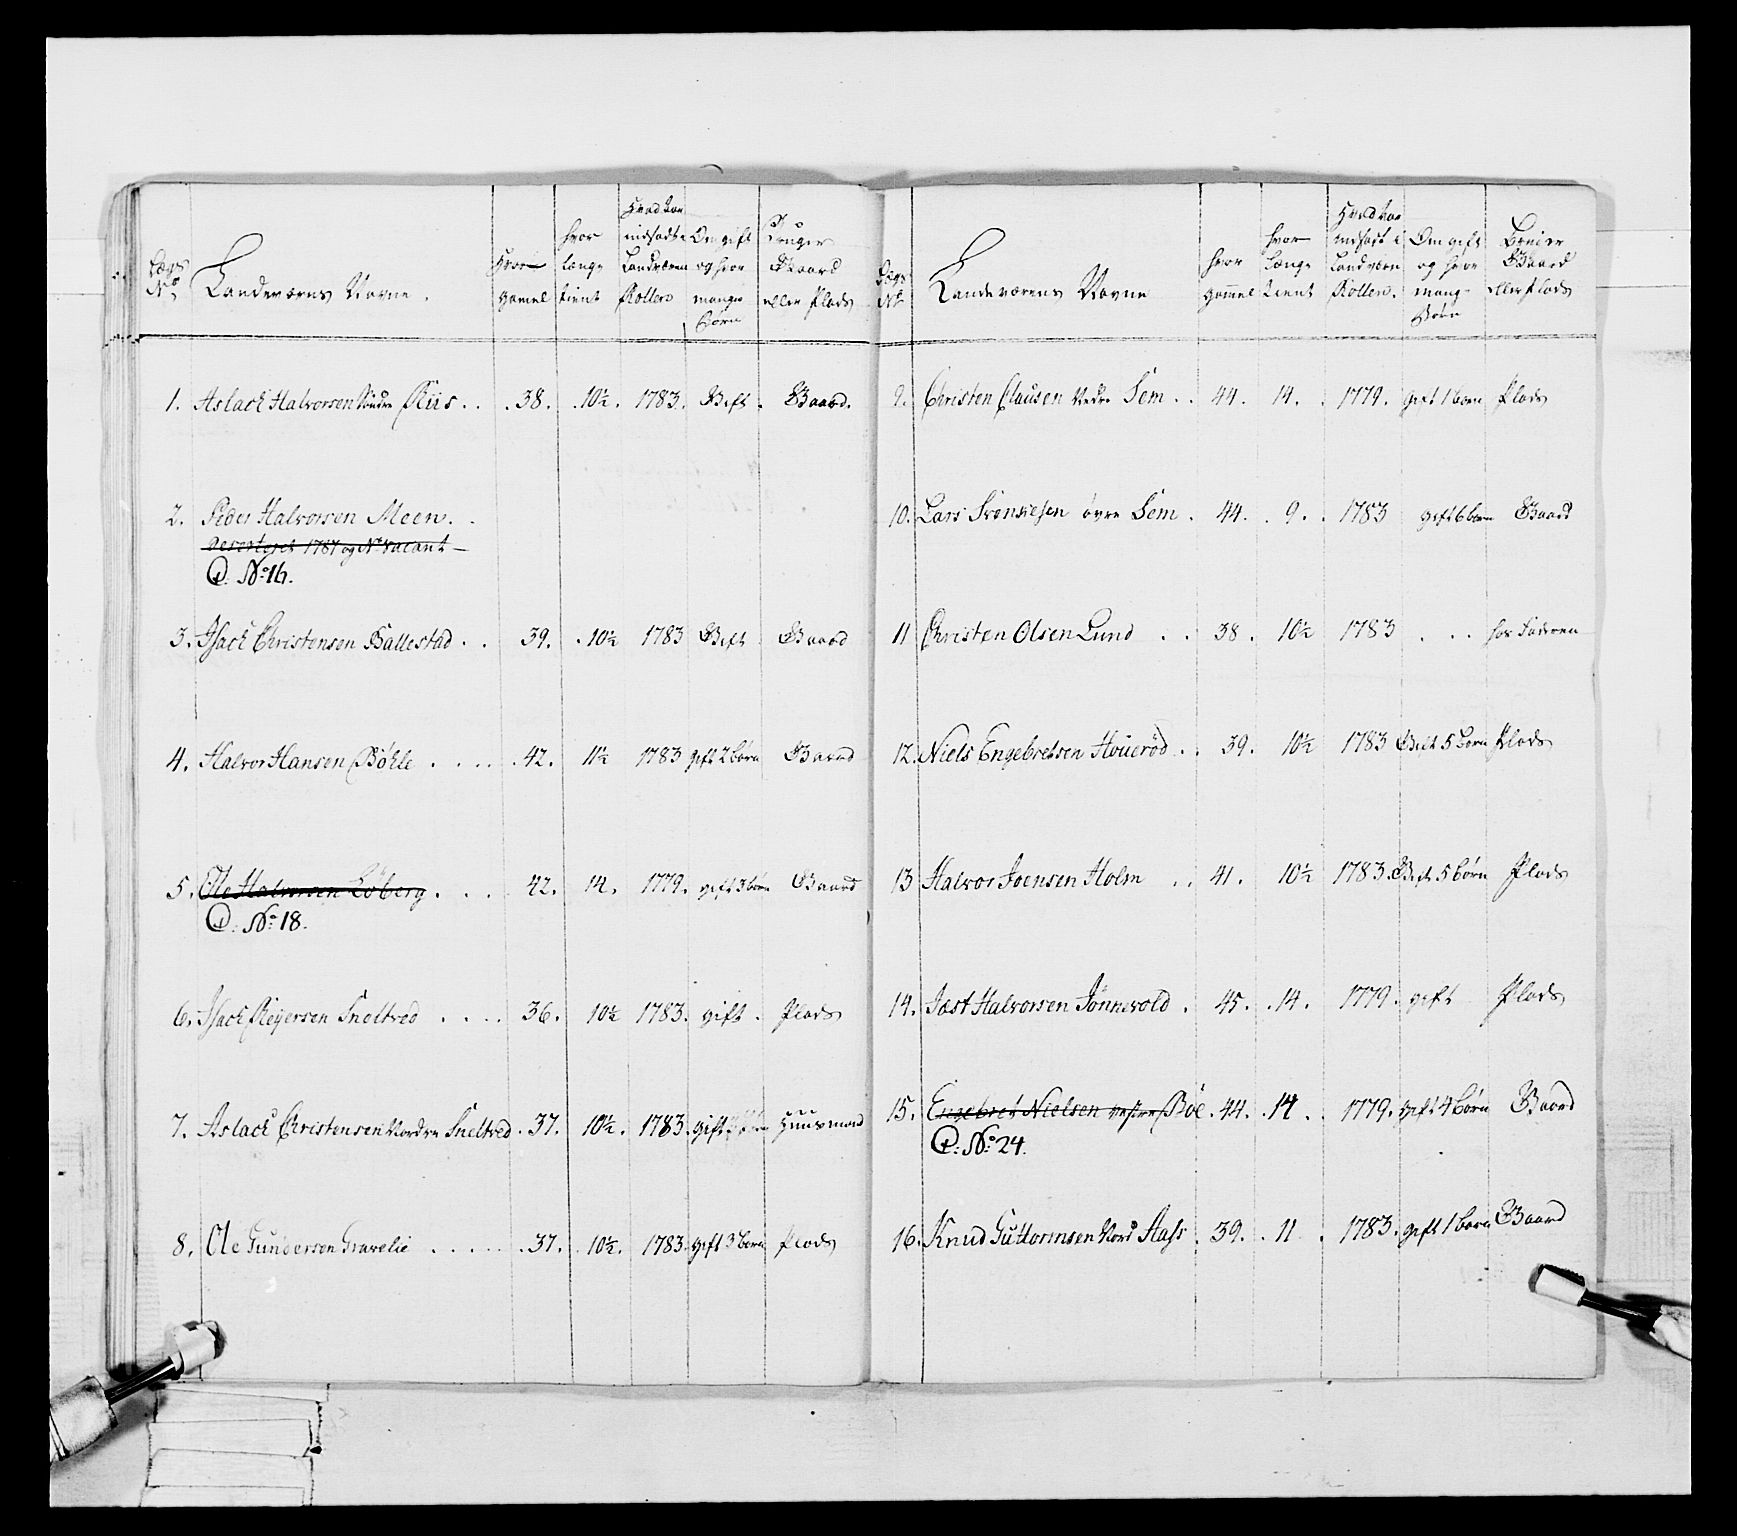 Lægs No
Landeværns Navne.
Hvor gamel
hvor længe tient
Hvad Aar indsadt i Landværn Rollen
Om gift og hvor mange Børn
Bruger Gaard eller Plads
1. Aslach Halvorsen Riis . . 38. 10½. 1783. Gift. Gaard.
2. Peder Halvorsen Meen. .
Deserteret 1787 og No vacant —
No 16.
3. Isach Christensen Ballestad . . 39. 10½ 1783 Gift. Gaard
4. Halvor Hansen Bøhle . . . . 42. 11½ 1783 gift 2 børn Gaard
5. Ole Halvorsen Løberg . . . 42. 14. 1779. gift 3 børn Gaard
No 18.
6. Isach Reyersen Sneltved . . . 36. 10½ 1783. gift. Plads
7. Aslach Christensen Nordre Sneltved. 37. 10½. 1783. gift Huusmand
8. Ole Gundersen Gravelie . . . . . 37. 10½. 1783. gift 3 børn Plads
Lægs No
Landeværens Navne
hvor gammel
hvor længe tient
Hvad Aar indsadt i Landværn Rollen.
Om gift og hvor mange Børn
Gaard eller Plads
9. Christen Clausen Nedre Sem . . 44. 14. . 1779. gift 1 børn Plads
10. Lars øvre Sem . 44. . 9. . 1783 gift 6 børn Gaard
11 Christen Olsen Lund . . 38. 10½ 1783 . . . hos Faderen
12. Niels Engebretsen Houerød . . 39. 10½ 1783 Gift 5 børn Plads
13 Halvor Joensen Holm . . 41. 10½ 1783. Gift 5 børn Plads
14. Jæst Halvorsen Jønnevold . 45. . 14. 1779. gift Plads
15. Engebret Nielsen vestre Bøe . 44. . 14 . . 1779. gift 4 børn Gaard
No 24.
16. Knud Guttormsen Nord Aass . 39. . 11 . 1783. gift 1 børn Gaard